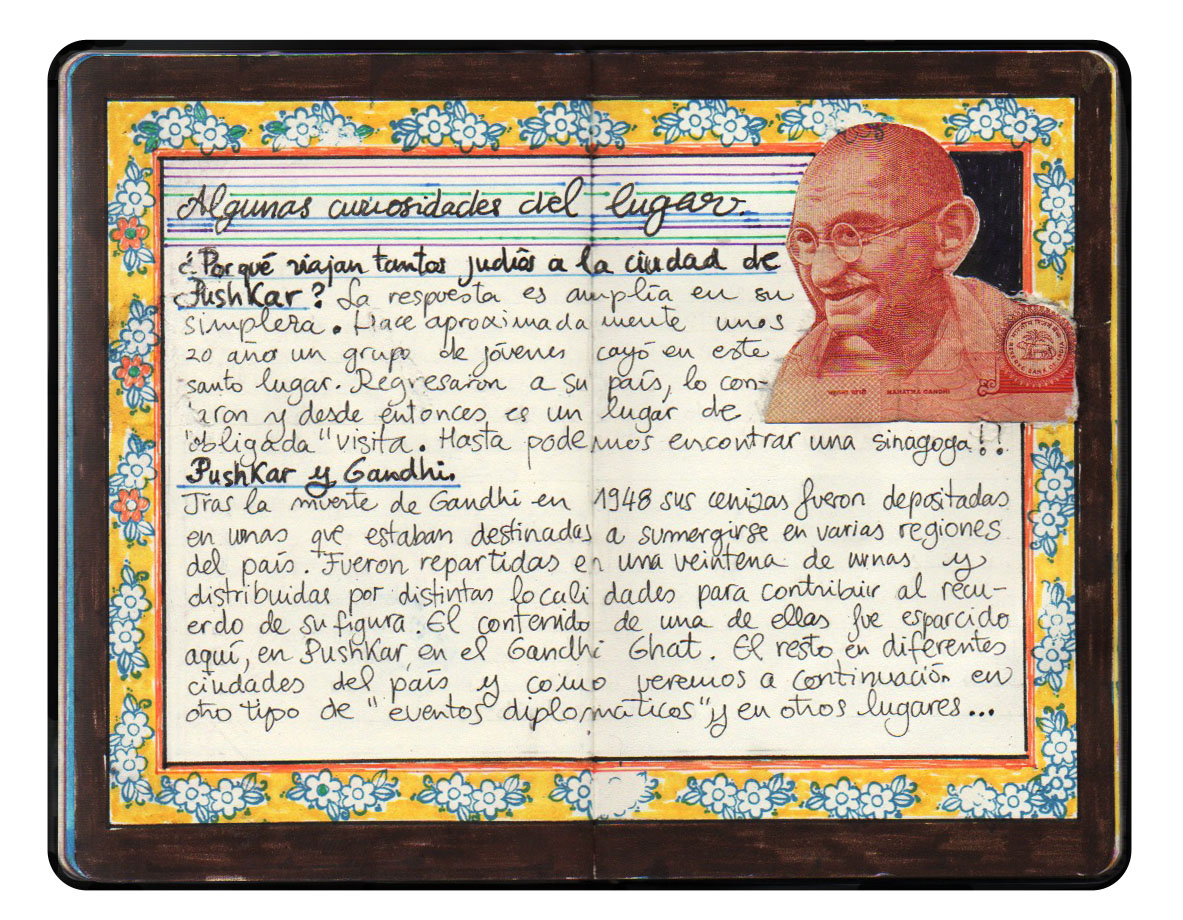 Algunas curiosidades del lugar.
¿Por qué viajan tantos judíos a la ciudad de
Pushkar? La respuesta es amplia en su
simpleza. Hace aproximadamente unos
20 años un grupo de jóvenes cayó en este
santo lugar. Regresaron a su país, lo con-
taron y desde entonces es un lugar de
"obligada" visita. Hasta podemos encontrar una sinagoga!!
Pushkar y Gandhi.
Tras la muerte de Gandhi en 1948 sus cenizas fueron depositadas
en urnas que estaban destinadas a sumergirse en varias regiones
del país. Fueron repartidas en una veintena de urnas y
distribuidas por distintas localidades para contribuir al recu-
erdo de su figura. El contenido de una de ellas fue esparcido
aquí, en Pushkar, en el Gandhi Ghat. El resto en diferentes
ciudades del país y como veremos a continuación en
otro tipo de "eventos diplomáticos" y en otros lugares...
MAHATMA GANDHI